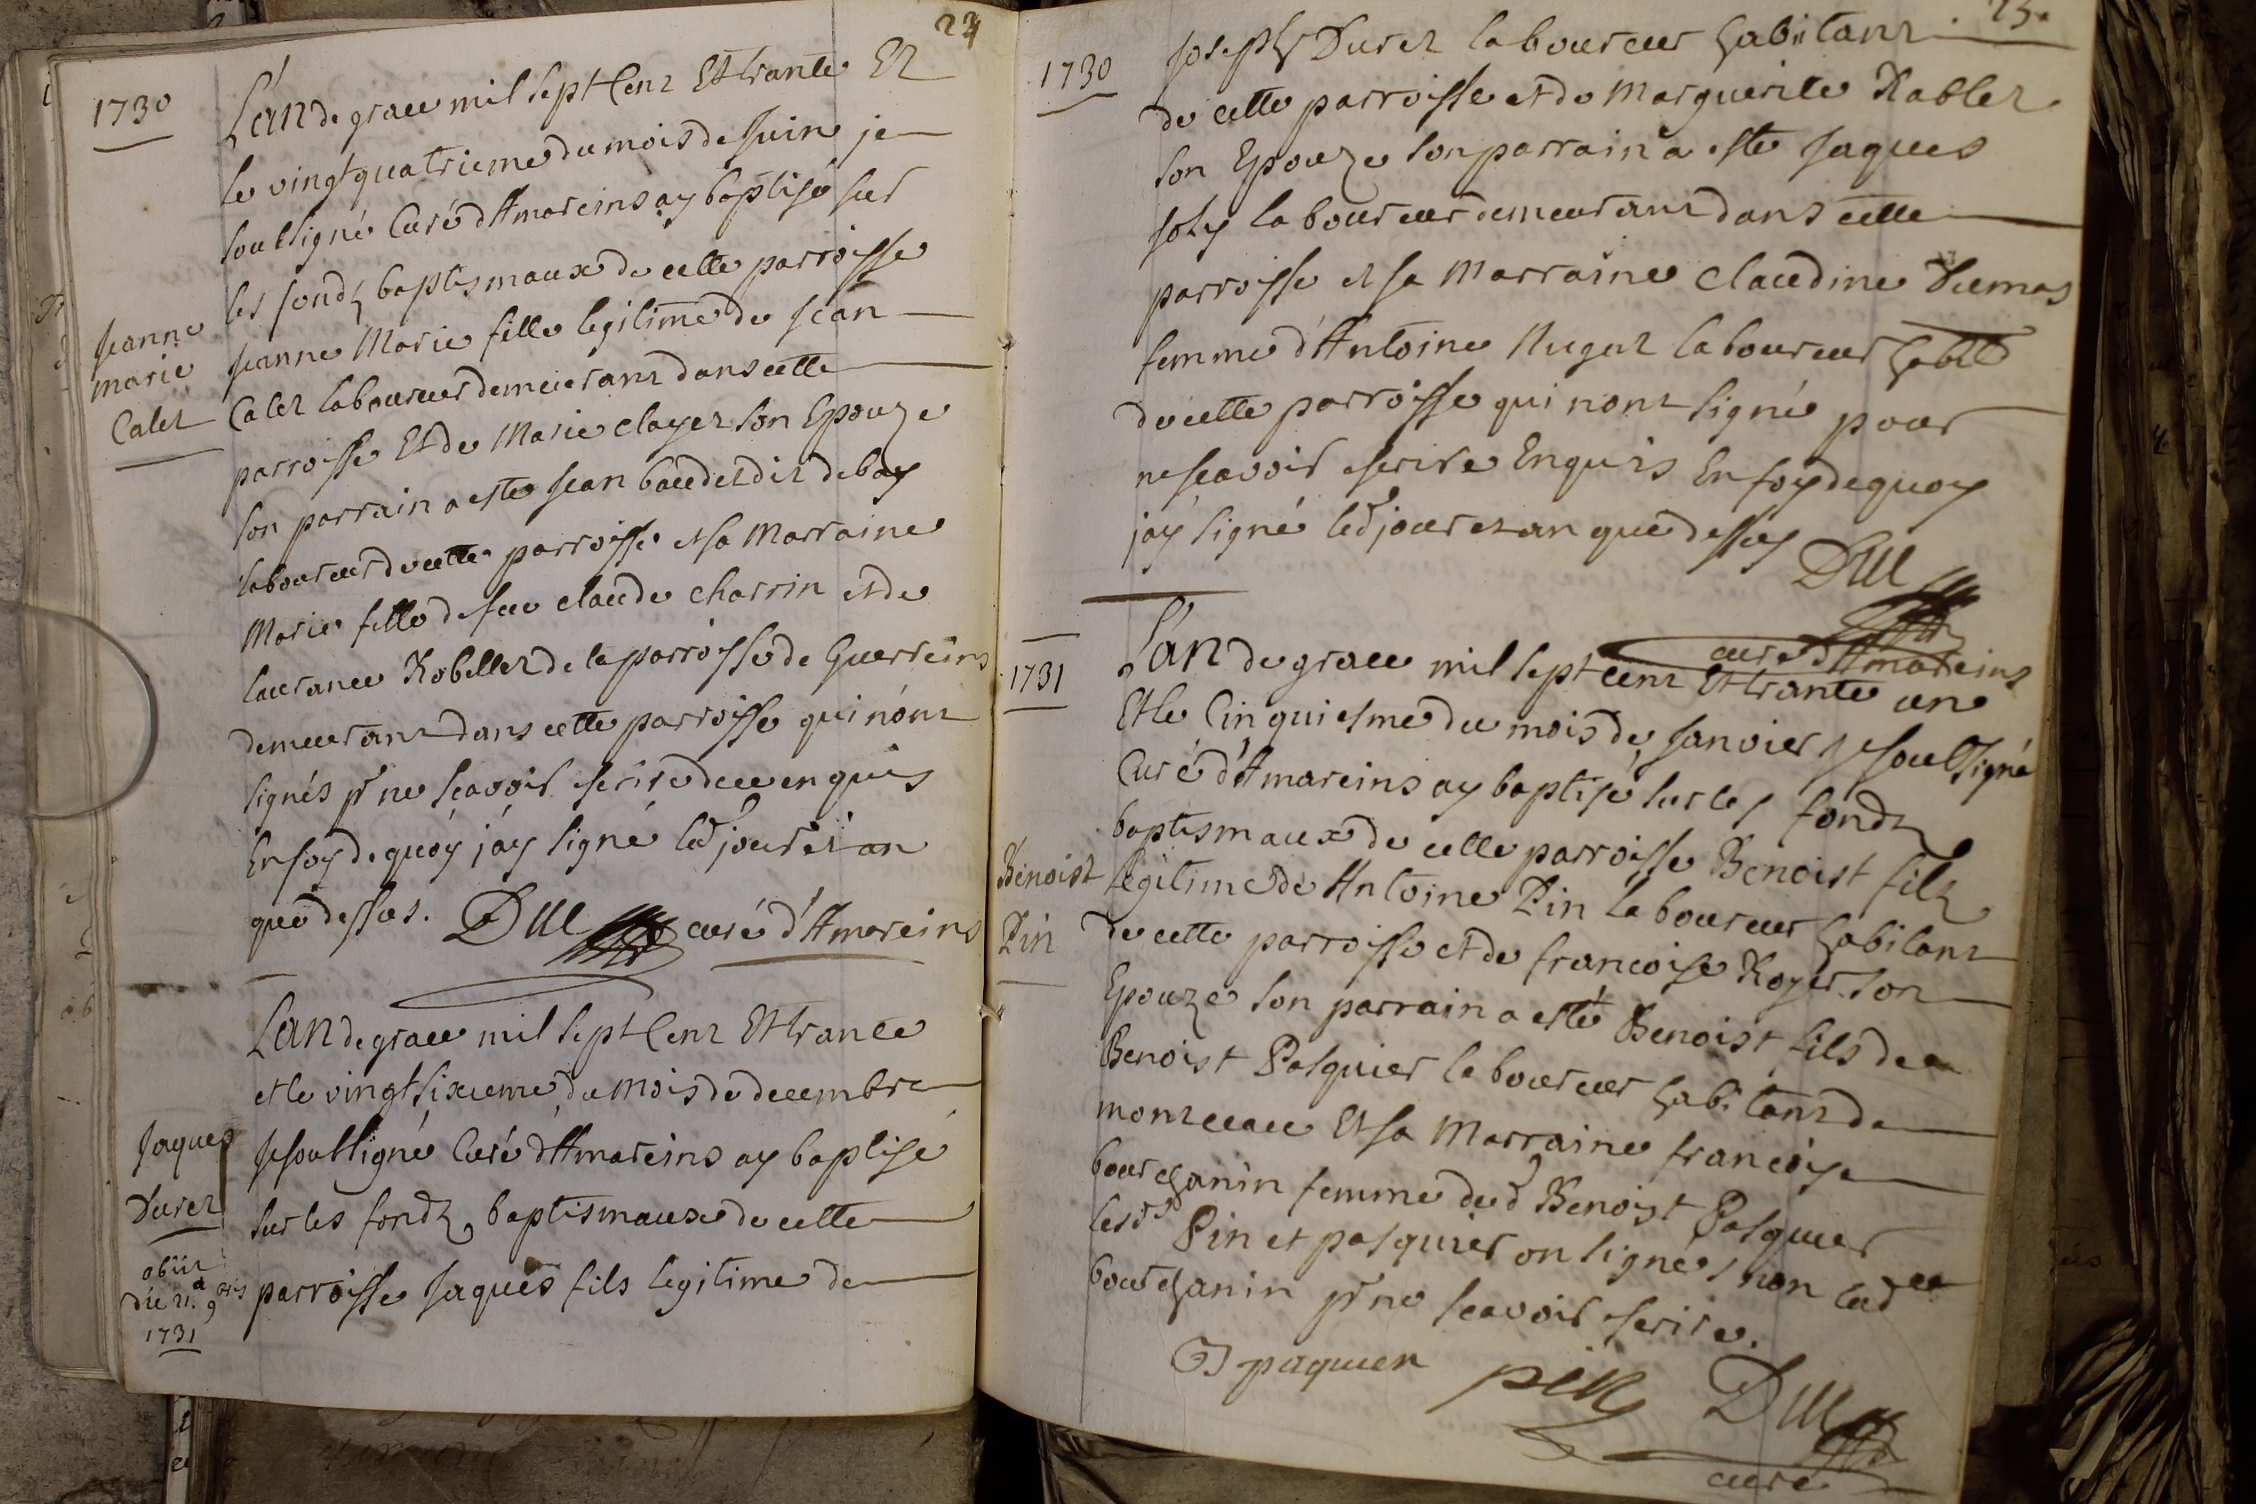 24
1730
L'an de grace mil sept Cent Et trante Et
le vingt quatrieme du mois de Juin je
soubsigné Curé d'Amareins ay baptisé sur
les fondz baptismaux de cette parroisse
Jeanne
marie
Calet
Jeanne Marie fille legitime de Jean
Calet laboureur demeurant dans cette
parroisse Et de Marie clayet son Epouze
son parrain a este Jean baudet dit debay
laboureur de cette parroisse et sa Marraine
Marie fille de feu claude charrin et de
laurance Robellet de la parroisse de Guerreins
demeurant dans cette parroisse qui n'ont
signés pr ne scavoir escrire de ce enquis
En foy de quoy j'ay signé led jour et an
que dessus. Dul curé d'Amareins
L'an de grace mil sept Cent Et trante
et le vingt sixieme du mois de decembre
Jaques
Duret
obiit
die 21.a 9bris
1731
Je soubsigné Curé d'Amareins ay baptisé
sur les fondz baptismaux de cette
parroisse Jaques fils legitime de
25.
1730
Joseph Duret laboureur habitant
de cette parroisse et de Marguerite Rablet
son Epouze son parrain a este Jaques
Joly laboureur demeurant dans cette
parroisse et sa Marraine Claudine Dumas
femme d'Antoine Nugat laboureur habit
de cette parroisse qui n'ont signé pour
ne scavoir escrire Enquis En foy de quoy
j'ay signé led jour et an que dessus
Dul
curé d'Amareins
1731
L'an de grace mil sept cent Et trante un
Et le Cinquiesme du mois de Janvier je soubsigné
Curé d'Amareins ay baptisé sur les fondz
baptismaux de cette parroisse Benoist filz
Benoist
Pin
legitime de Antoine Pin laboureur habitant
de cette parroisse et de francoise Royer son
Epouze son parrain a esté Benoist fils de
Benoist Pasquier laboureur habitant de
montceau Et sa Marraine francoise
bourchanin femme dud Benoist Pasquier
lesds Pin et pasquier on signés non lad
bourchanin pr ne scavoir escrire.
B paquier pin Dul
curé